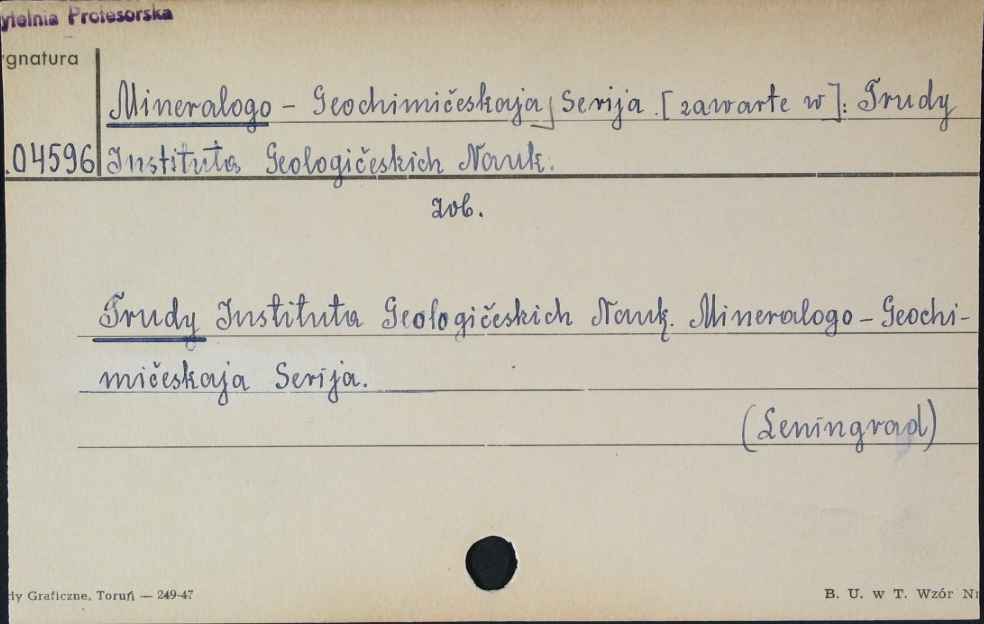 ytelnia Profesorska
ygnatura
Mineralogo - Geochimičeskaja Serija. [zawarte w]: Trudy
.04596 Instituta Geologičeskich Nauk.
zob.
Trudy Instituta Geologičeskich Nauk. Mineralogo - Geochi-
mičeskaja Serija.
(Leningrad)
dy Graficzne, Toruń — 249-47
B. U. w T. Wzór Nr